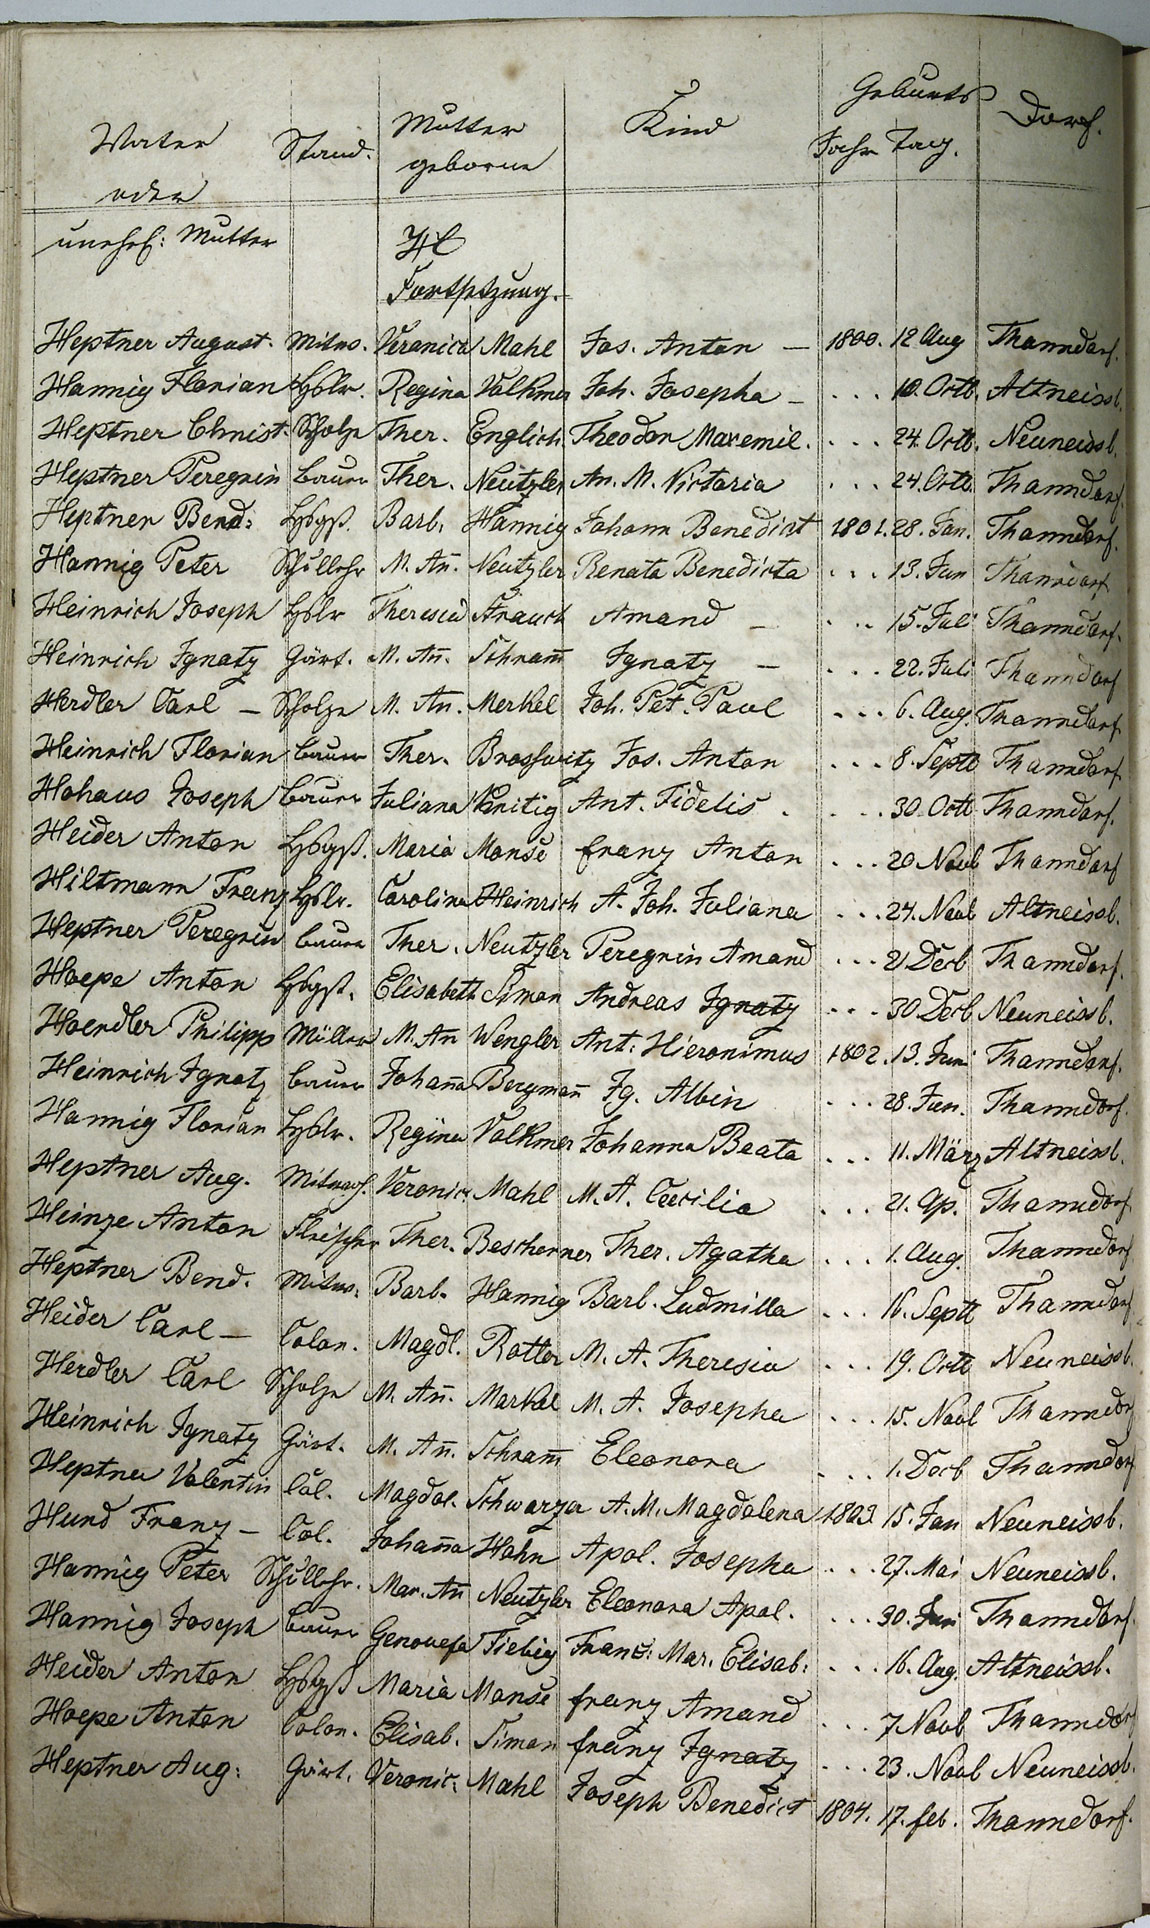 Vater Stand. Mutter Kind Geburts Dorf.
oder geborne Jahr Tag.
unehel: Mutter H
Fortsetzung.
Heptner August. Mitw. Veronica Mahl Jos. Anton — 1800. 12 Aug Thanndorf.
Hannig Florian Hslr. Regina Volkmer Joh. Josepha — . . . 10. Octb. Altneissb.
Heptner Christ. Scholze Ther. Englich Theodor Maxemil. . . . 24. Octb. Neuneissb.
Heptner Peregrin Bauer Ther. Neutzler An. M. Victoria . . . 24. Octb. Thanndorf.
Heptner Bend: Hsgß. Barb. Hannig Johann Benedict 1801. 28. Jan. Thanndorf.
Hannig Peter Schullehr M. An̅. Neutzler Renata Benedicta . . . 13. Jun Thanndorf
Heinrich Joseph Hslr Theresia Strauch Amand — . . . 15. Juli Thanndorf.
Heinrich Ignatz Gärt. M. An̅. Schram̅ Ignatz — . . . 22. Juli Thanndorf
Herdler Carl — Scholze M. An. Merkel Joh. Pet. Paul . . . 6. Aug. Thanndorf
Heinrich Florian Bauer Ther. Brosswitz Jos. Anton . . . 8. Septb Thanndorf
Hohaus Joseph Bauer Juliana Knitig Ant. Fidelis . . . . 30. Octb Thanndorf.
Heider Anton Hsgß. Maria Monse Franz Anton . . . 20 Novb Thanndorf
Hiltmann Franz Hslr. Carolina Heinrich A. Joh. Juliana . . . 24. Novb Altneissb.
Heptner Peregrin Bauer Ther. Neutzler Peregrin Amand . . . 21 Decb Thanndorf.
Hoepe Anton Hsgß. Elisabeth Simon Andreas Ignatz . . . 30. Decb Neuneissb.
Hoerdler Philipp Müller M. An Wengler Ant: Hieronimus 1802. 13. Juni Thanndorf.
Heinrich Ignatz Bauer Johan̅a Bergman̅ Ig. Albin . . . 28. Jun. Thanndorf.
Hannig Florian Hslr. Regina Volkmer Johanna Beata . . . 11. März Altneissb.
Heptner Aug. Mitw. Veronic. Mahl M. A. Caecilia . . . 21. Ap. Thanndorf
Heinze Anton Fleischer Ther. Bescherner Ther. Agatha . . . 1. Aug. Thanndorf
Heptner Bend. Mitw. Barb. Hannig Barb. Ludmilla . . . 16. Septb Thanndorf
Heider Carl — Colon. Magdl. Rotter M. A. Theresia . . . 19. Octb Neuneissb.
Herdler Carl Scholze M. An̅. Markel M. A. Josepha . . . 15. Novb Thanndorf
Heinrich Ignatz Gärt. M. An̅. Schram̅ Eleonora . . . 1. Decb Thanndorf
Heptner Valentin Col. Magdal. Schwarzer A. M. Magdalena 1803 15. Jan Neuneissb.
Hund Franz — Col. Johan̅a Hahn Apol. Josepha . . . 27. Mai Neuneissb.
Hannig Peter Schullehr. Mar. An̅ Neutzler Eleonora Apol. . . . 30. Juni Thanndorf.
Hannig Joseph Bauer Genovefa Fiebig Franc: Mar. Elisab: . . . 16. Aug. Altneissb.
Heider Anton Hsgß Maria Monse Franz Amand . . . 7 Novb Thanndorf
Hoepe Anton Colon. Elisab. Simon Franz Ignatz . . . 23. Novb Neuneissb.
Heptner Aug: Gärt. Veronic: Mahl Joseph Benedict 1804. 17. Feb. Thanndorf.